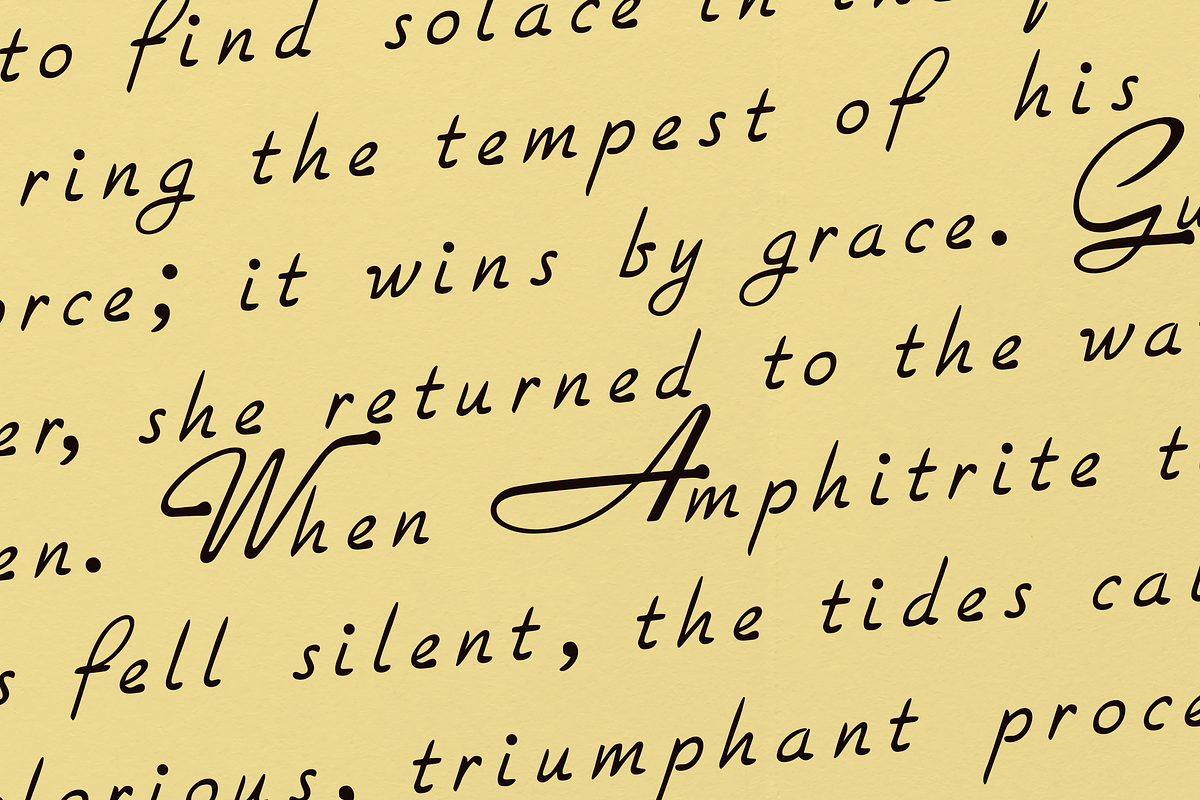 to find solace in the
ring the tempest of his
orce; it wins by grace. Gu
er, she returned to the wa
en. When Amphitrite t
s fell silent, the tides cal
lorious, triumphant proce